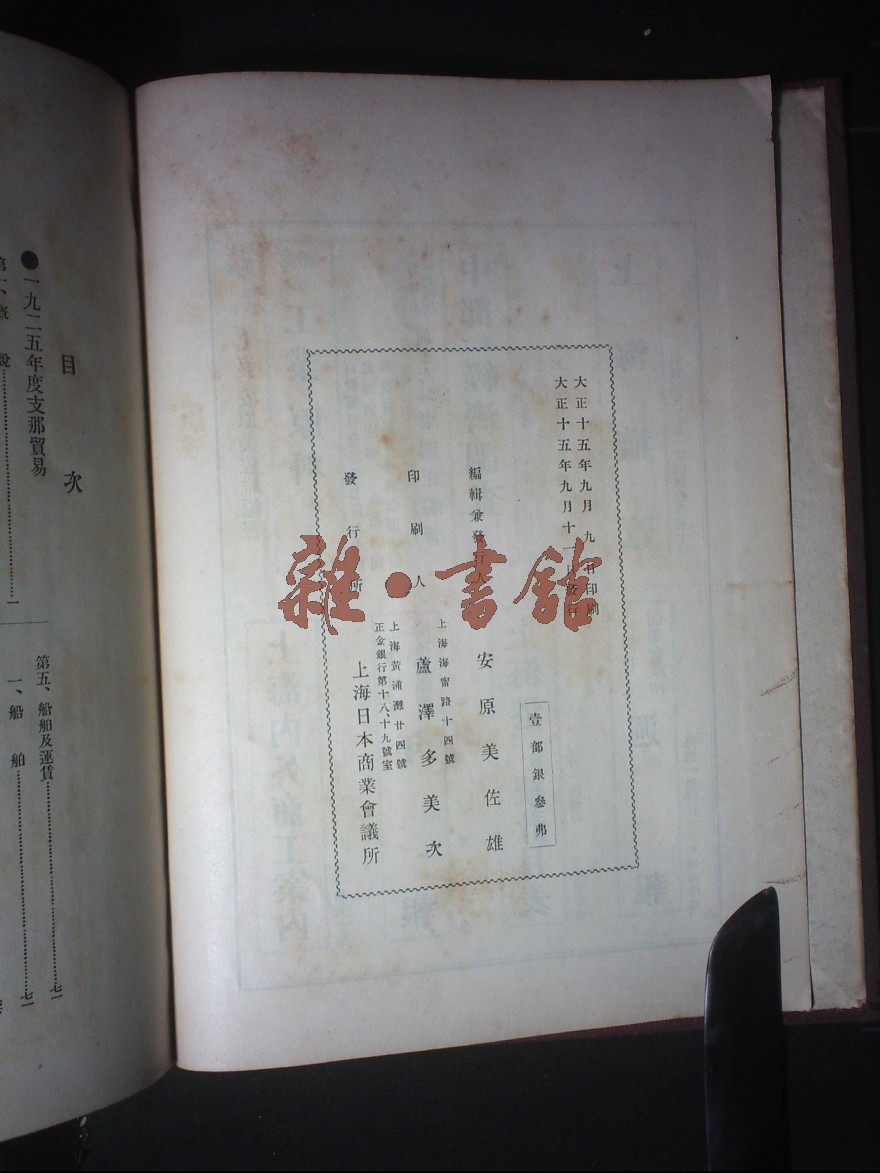 大正十五年九月九日印刷
大正十五年九月十一日發行
壹部銀參弗
編輯兼發行人 安原美佐雄
上海海甯路十四號
印刷人 蘆澤多美次
上海黃浦灘廿四號
正金銀行第十八、十九號室
發行所 上海日本商業會議所
雜·書館
目次
●一九二五年度支那貿易
第一、概說…………一
第五、船舶及運賃…………七一
一、船舶…………七一